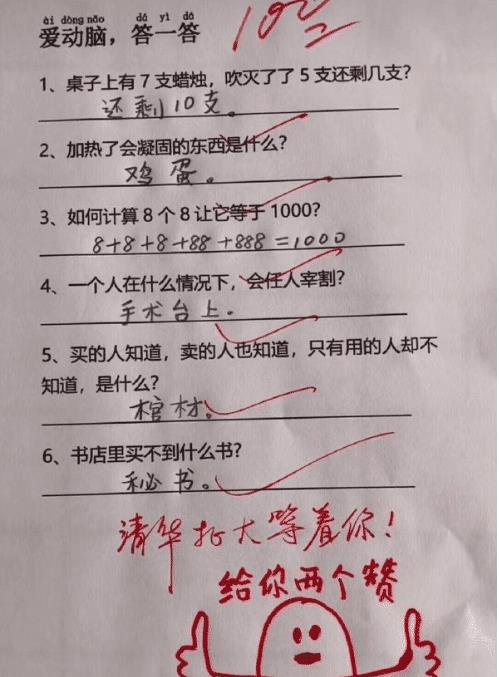 ài dòng nǎo dá yì dá
爱动脑，答一答
100
1、桌子上有 7 支蜡烛，吹灭了了 5 支还剩几支？
还剩10支。
2、加热了会凝固的东西是什么？
鸡蛋。
3、如何计算 8 个 8 让它等于 1000？
8+8+8+88+888=1000
4、一个人在什么情况下，会任人宰割？
手术台上。
5、买的人知道，卖的人也知道，只有用的人却不
知道，是什么？
棺材。
6、书店里买不到什么书？
秘书。
清华北大等着你！
给你两个赞